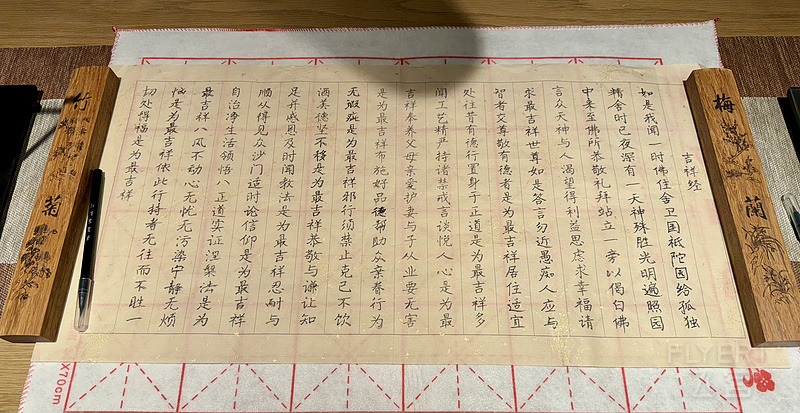 梅
蘭
吉祥经
如是我闻一时佛住舍卫国祗陀园给孤独
精舍时已夜深有一天神殊胜光明遍照园
中来至佛所恭敬礼拜站立一旁以偈白佛
言众天神与人渴望得利益思虑求幸福请
求最吉祥世尊如是答言勿近愚痴人应与
智者交尊敬有德者是为最吉祥居住适宜
处往昔有德行置身于正道是为最吉祥多
闻工艺精严持诸禁戒言谈悦人心是为最
吉祥奉养父母亲爱护妻与子从业要无害
是为最吉祥布施好品德帮助众亲眷行为
无瑕疵是为最吉祥邪行须禁止克己不饮
酒美德坚不移是为最吉祥恭敬与谦让知
足并感恩及时闻教法是为最吉祥忍耐与
顺从得见众沙门适时论信仰是为最吉祥
自治净生活领悟八正道实证涅槃法是为
最吉祥八风不动心无忧无污染宁静无烦
恼是为最吉祥依此行持者无往而不胜一
切处得福是为最吉祥
竹
菊
X70cm
FLYERT